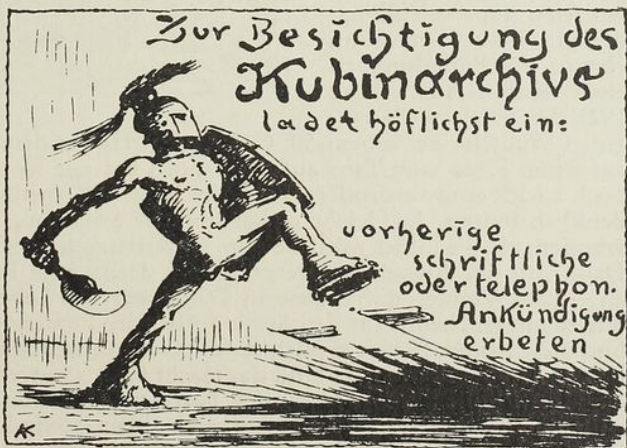 Zur Besichtigung des
Kubinarchivs
ladet höflichst ein:
vorherige
schriftliche
oder telephon.
Ankündigung
erbeten
AK